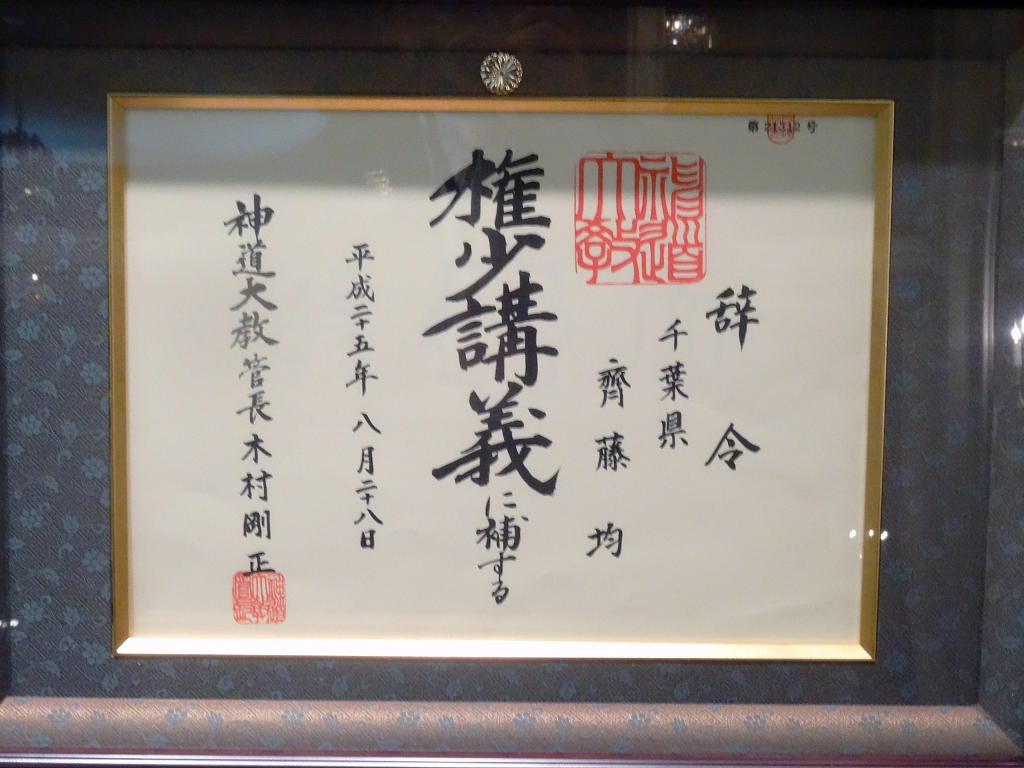 第21312号
辞令
千葉県
齊藤均
権少講義に補する
平成二十五年八月二十八日
神道大教管長木村剛正
神道大教